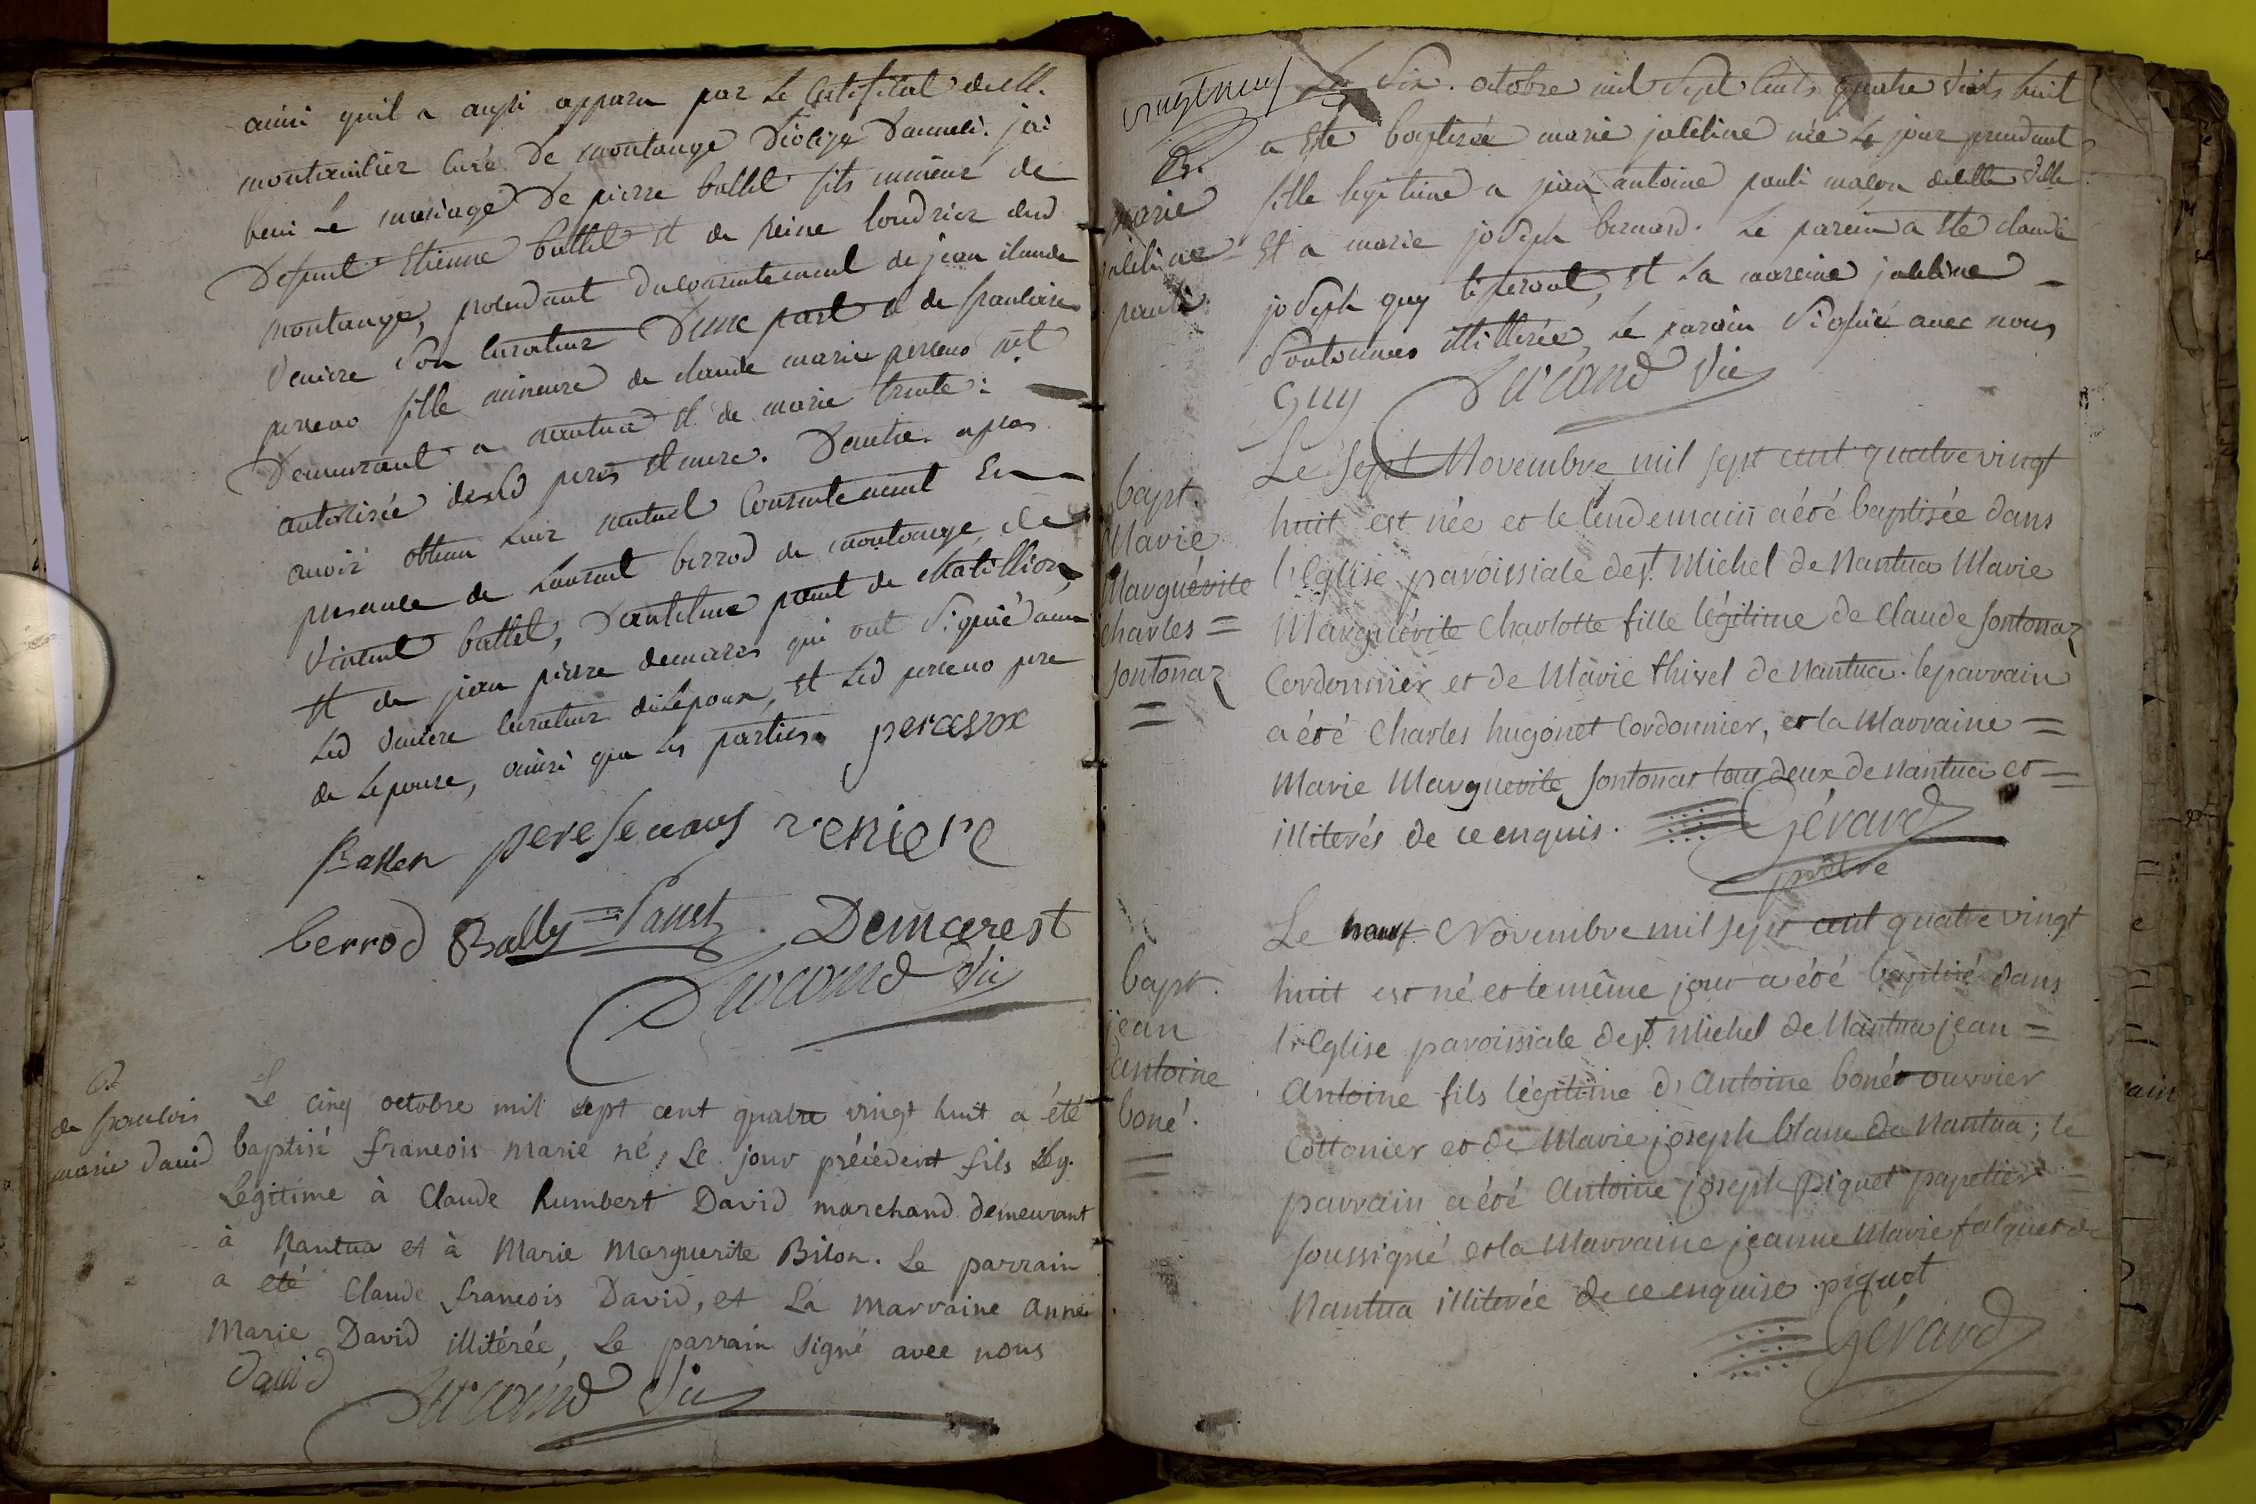 ainsi quil a aussi apparu par le Certifical de M.
curé de montange Diocèse Dannecï. jai
beni Le mariage De pierre ballet fils mineur de
Defunt Etienne ballet et de Reine loudrier dud
montange, procedant du consentement de jean claude
Veniere son curateur D'une part et de francoise
perseno fille mineure de claude marie perseno nt
Demeurant a nantua et de marie
autorisée desd peres et mere. Dautre. apres
avoir obtenu leur mutuel Consentement En
presance de Laurent berrod de montange, de
Vincent ballet, point de chatillion,
et de jean pierre demares qui ont signé avec
Led Veniere curateur de Lepoux, et Led perseno pere
de Lepouse, ainsi que les parties. peraesox
Ballet peresenaus reniere
berrod Bally Demarest
Ducornd Vic
Bt
de francois
marie David
Le cinq octobre mil sept cent quatre vingt huit a été
baptisé francois marie né, Le jour précédent fils leg.
Legitime à Claude humbert David marchand demeurant
à Nantua et à Marie Marguerite Bilon. Le parrain
a été Claude francois David, et La marraine anne
Marie David illitérée, Le parrain signé avec nous
David Ducornd Vic
vingtneuf
Bt.
marie
joleline
pauli
Le Six. octobre mil Sept Cents quatre Vints huit
a Ete baptisée marie joleline née Le jour precedant
fille legitime a jean antoine pauli maçon de cette Ville
Et a marie joseph bernard. Le parein a Ete claude
joseph guy et La mareine joleline
Sontonnas illiterée, Le parain Signé avec nous
Guy Ducornd Vic
bapt.
Marie
Marguérite
charles =
sontonaz
=
Le sept Novembre mil sept cent quatre vingt
huit est née et le lendemain a été baptisée dans
l'Eglise paroissiale de st. Michel de Nantua Marie
Marguérite Charlotte fille légitime de Claude sontonaz
Cordonnier et de Marie thivel de nantua. le parrain
a été Charles hugonet Cordonnier, et la Marraine =
Marie Marguerite sontonas tous deux de nantua et =
illiterés de ce enquis. Gérard
prêtre
bapt.
jean
antoine
boné.
=
Le neuf Novembre mil sept cent quatre vingt
huit est né et le même jour a été baptisé dans
l'Eglise paroissiale de st. Michel de Nantua jean =
Antoine fils légitime d'Antoine bonét ouvrier
Cottonier et de Marie joseph blanc de Nantua; le
parrain a été Antoine joseph piquet papetier =
soussigné et la Marraine jeanne Marie falquet de
Nantua illiterée de ce enquise. piquet
Gérard